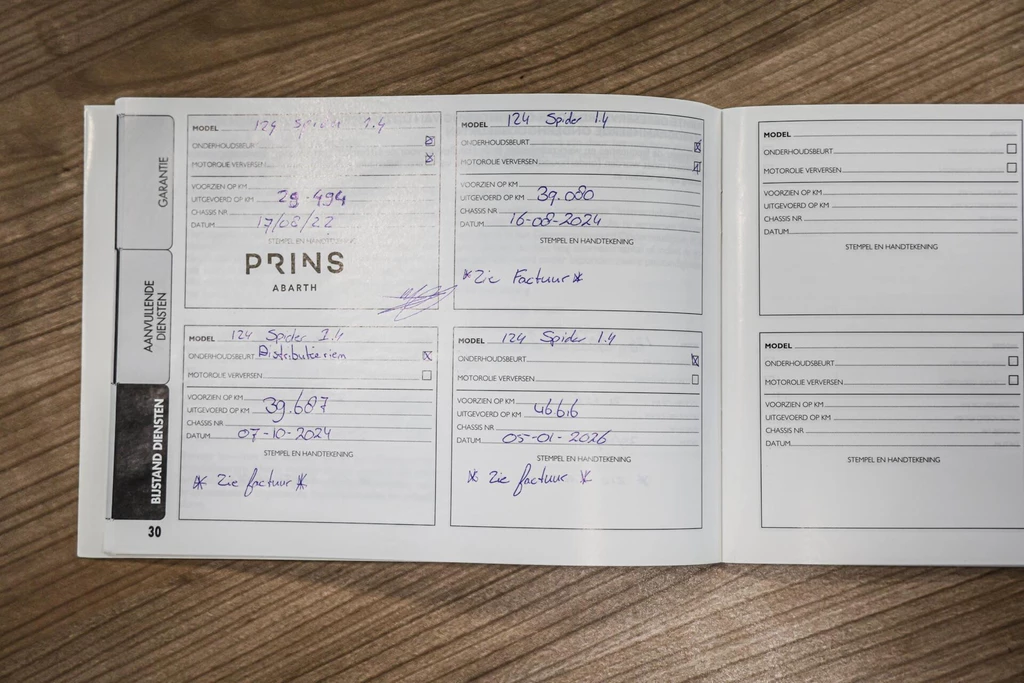 GARANTIE
AANVULLENDE
DIENSTEN
BIJSTAND DIENSTEN
30
MODEL 124 Spider 1.4
ONDERHOUDSBEURT
MOTOROLIE VERVERSEN
VOORZIEN OP KM
UITGEVOERD OP KM 29.494
CHASSIS NR
DATUM 17/08/22
STEMPEL EN HANDTEKENING
PRINS
ABARTH
MODEL 124 Spider 1.4
ONDERHOUDSBEURT
MOTOROLIE VERVERSEN
VOORZIEN OP KM
UITGEVOERD OP KM 39.080
CHASSIS NR
DATUM 16-08-2024
STEMPEL EN HANDTEKENING
*Zie Factuur*
MODEL 124 Spider 1.4
ONDERHOUDSBEURT Distributieriem
MOTOROLIE VERVERSEN
VOORZIEN OP KM
UITGEVOERD OP KM 39.687
CHASSIS NR
DATUM 07-10-2024
STEMPEL EN HANDTEKENING
* Zie factuur *
MODEL 124 Spider 1.4
ONDERHOUDSBEURT
MOTOROLIE VERVERSEN
VOORZIEN OP KM
UITGEVOERD OP KM
CHASSIS NR
DATUM 05-01-2026
STEMPEL EN HANDTEKENING
* Zie factuur *
MODEL
ONDERHOUDSBEURT
MOTOROLIE VERVERSEN
VOORZIEN OP KM
UITGEVOERD OP KM
CHASSIS NR
DATUM
STEMPEL EN HANDTEKENING
MODEL
ONDERHOUDSBEURT
MOTOROLIE VERVERSEN
VOORZIEN OP KM
UITGEVOERD OP KM
CHASSIS NR
DATUM
STEMPEL EN HANDTEKENING